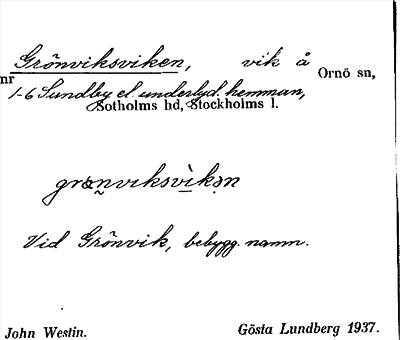 Grönviksviken, vik å Ornö sn,
nr 1-6 Sundby el. underlyd. hemman,
Sotholms hd, Stockholms l.
grœ̰nviksvìkə̣n
Vid Grönvik, bebygg. namn.
John Westin. Gösta Lundberg 1937.